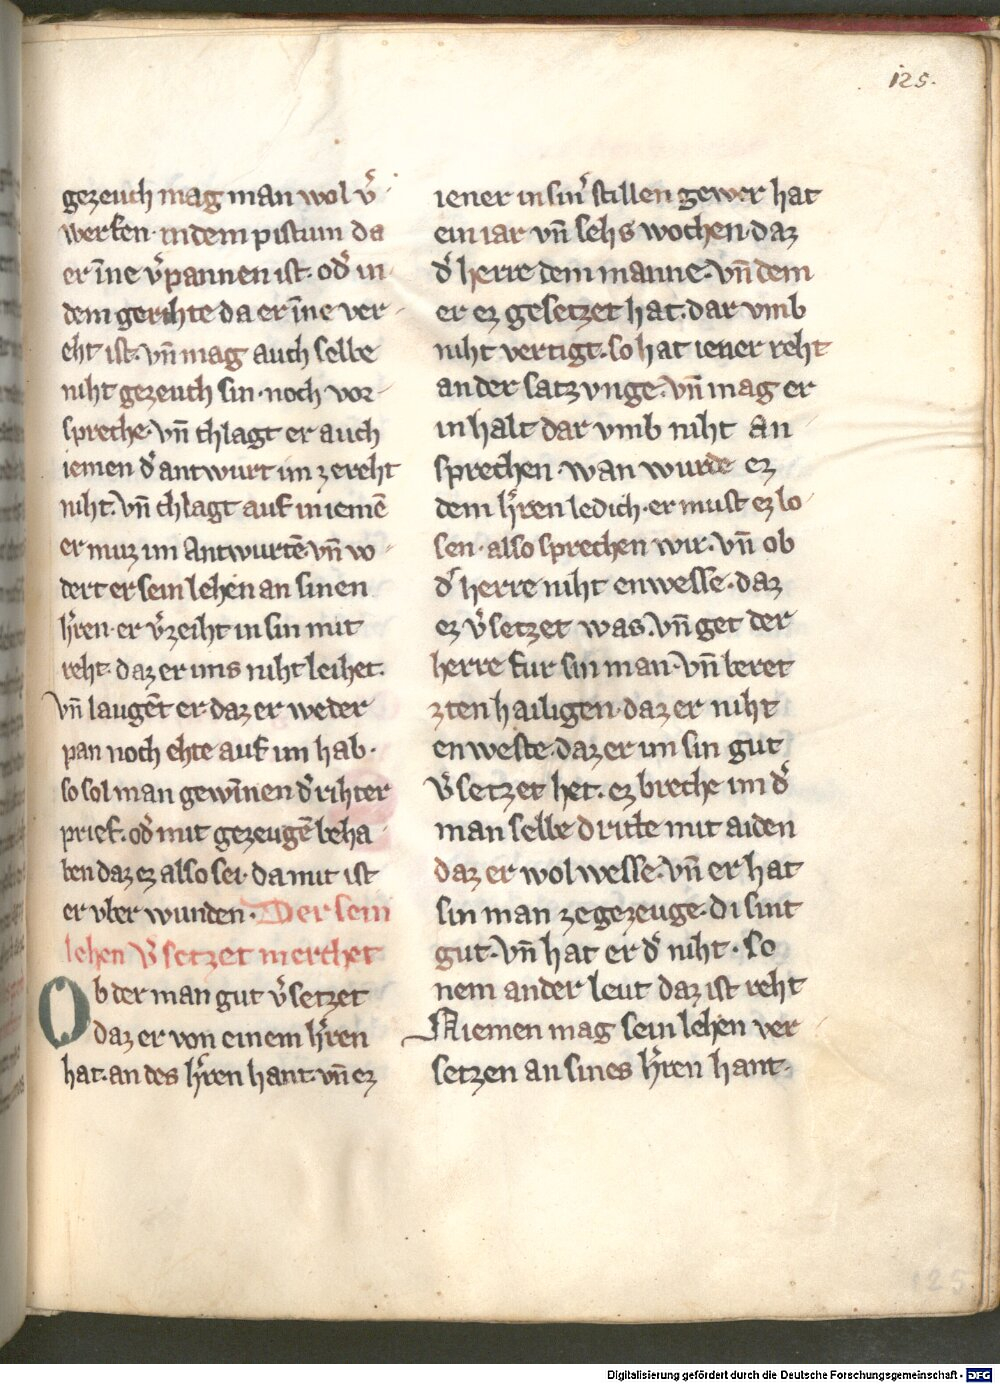 125.
gezeuch mag man wol v̾
werfen· in dem pistum da
er īne v̾pannen ist· od̾ in
dem gerihte da er īne ver
eht ist· vn̄ mag auch selbe
niht gezeuch sin· noch vor
spreche· vn̄ chlagt er auch
iemen d̾ antwurt im ze reht
niht· vn̄ chlagt auf in iemē
er muz im antwurtē· vn̄ vo
dert er sein lehen an sinen
h̾ren· er v̾zeiht in sin mit
reht· daz er ims niht leihet·
vn̄ laugēt er daz er weder
pan noch ehte auf im hab·
so sol man gewīnen d̾ rihter
prief· od̾ mit gezeugē beha
ben daz ez also sei· da mit ist
er vber wunden· Der sein
lehen v̾setzet merchet
Ob der man gut v̾setzet
daz er von einem h̾ren
hat· an des h̾ren hant· vn̄ ez
iener in sin̾ stillen gewer hat
ein iar vn̄ sehs wochen· daz
d̾ herre dem manne· vn̄ dem
er ez gesetzet hat· dar vmb
niht vertigt· so hat iener reht
an der satzvnge· vn̄ mag er
in halt dar vmb niht an
sprechen· wan wurde ez
dem h̾ren ledich· er must ez lo
sen· also sprechen wir· vn̄ ob
d̾ herre niht enwesse· daz
ez v̾setzet was· vn̄ get der
herre fur sin man· vn̄ beret
zten hailigen· daz er niht
enweste· daz er im sin gut
v̾setzet het· ez breche im d̾
man selbe dritte mit aiden
daz er wol wesse· vn̄ er hat
sin man ze gezeuge· di sint
gut· vn̄ hat er d̾ niht· so
nem ander leut daz ist reht
Niemen mag sein lehen ver
setzen an sines h̾ren hant·
125
Digitalisierung gefördert durch die Deutsche Forschungsgemeinschaft - DFG